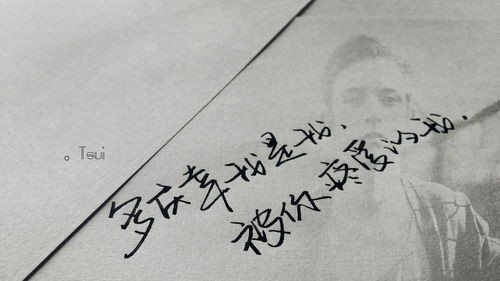 多庆幸我是我.
被你疼爱的我.
。Tsui